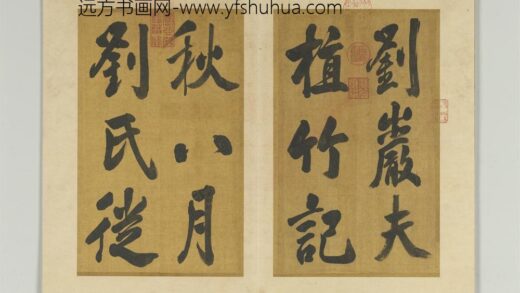 远方书画网 www.yfshuhua.com
劉巖夫
植竹記
秋八月
劉氏徙